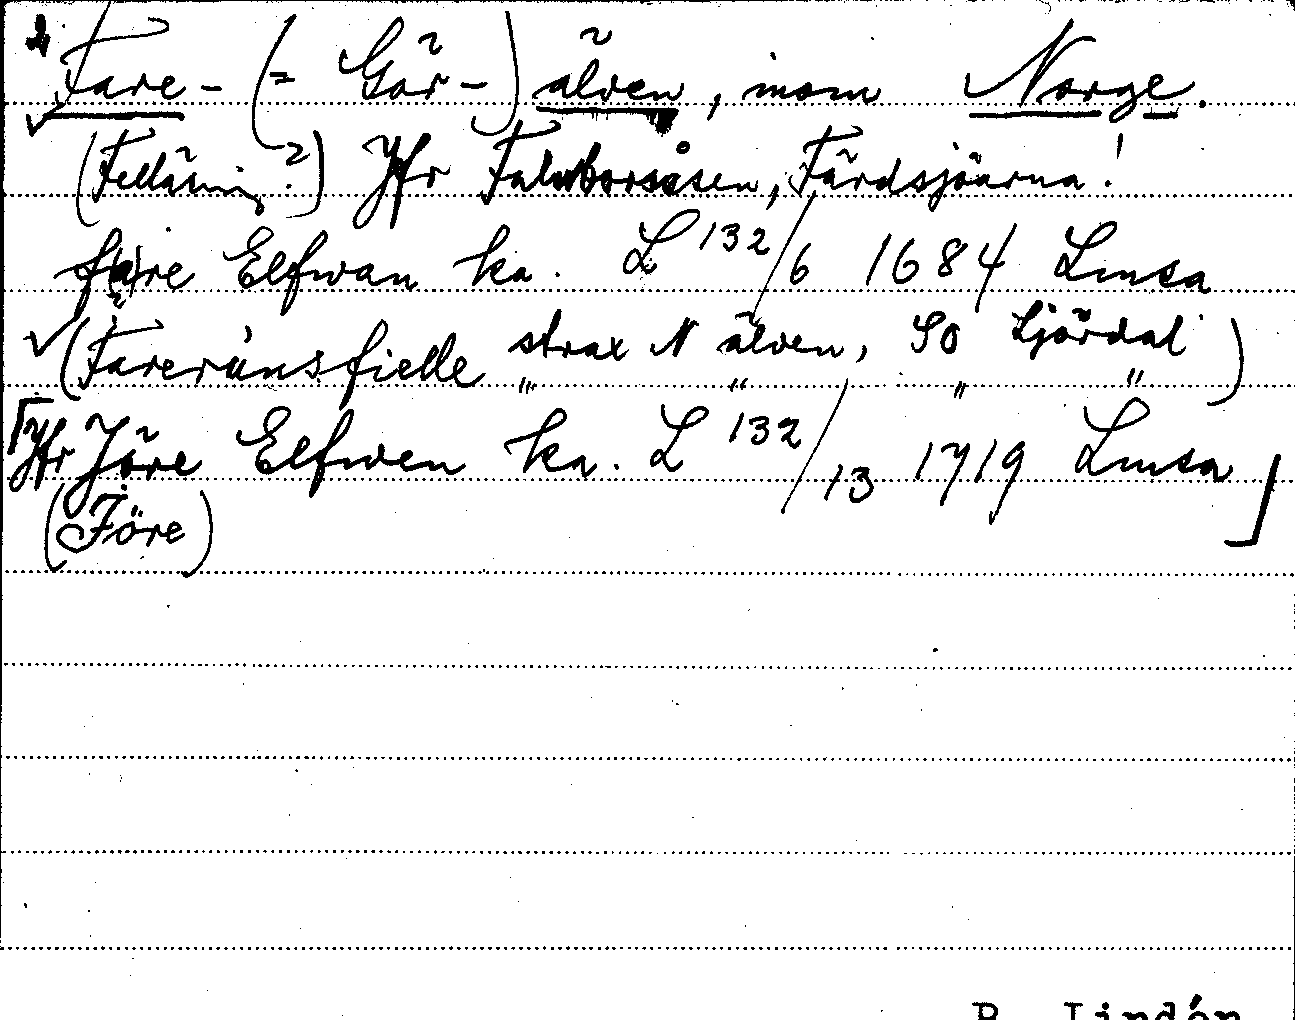 Fare- (= Gör-) älven, inom Norge.
(Felläsning?) Jfr Faluborsåsen, Färdsjöarna!
fare Elfwan ka. L 132/6 1684 Lmsa
(Farerunsfielle strax N älven, SO Ljördal)
" " " "
[Jfr Jöre Elfwen ka. L 132/13 1719 Lmsa]
(Jöre)
B. Lindén